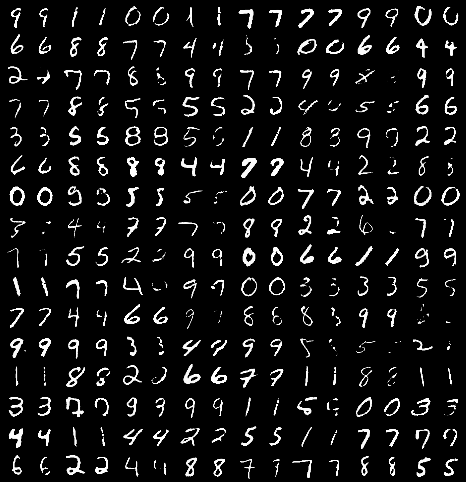 9 9 1 1 0 0 1 1 7 7 7 7 9 9 0 0
6 6 8 8 7 7 4 4 3 0 0 6 6 4 4
2 7 7 8 8 9 9 7 7 9 9 8 9 9
7 7 8 8 5 5 5 5 2 2 4 5 5 6 6
3 3 5 5 8 8 5 6 1 1 8 8 9 9 2 2
6 6 8 8 8 8 4 4 7 7 4 4 2 2 8 8
0 0 9 9 5 5 5 5 0 0 7 7 2 2 0 0
3 4 4 7 7 7 7 8 8 2 2 6 7 7
7 7 5 5 2 9 9 0 0 6 6 1 1 9 9
1 1 7 7 4 9 7 0 0 3 3 3 3 5 5
7 7 4 4 6 6 9 8 8 8 8 9 9
9 9 9 9 3 3 4 9 9 5 5 2
1 1 8 8 2 2 6 6 7 7 1 1 8 8 1 1
3 3 7 7 9 9 9 9 1 1 5 5 0 0 3 3
4 4 1 1 4 4 2 2 5 5 1 1 7 7 7 7
6 6 2 2 4 4 8 8 7 7 7 7 8 8 5 5